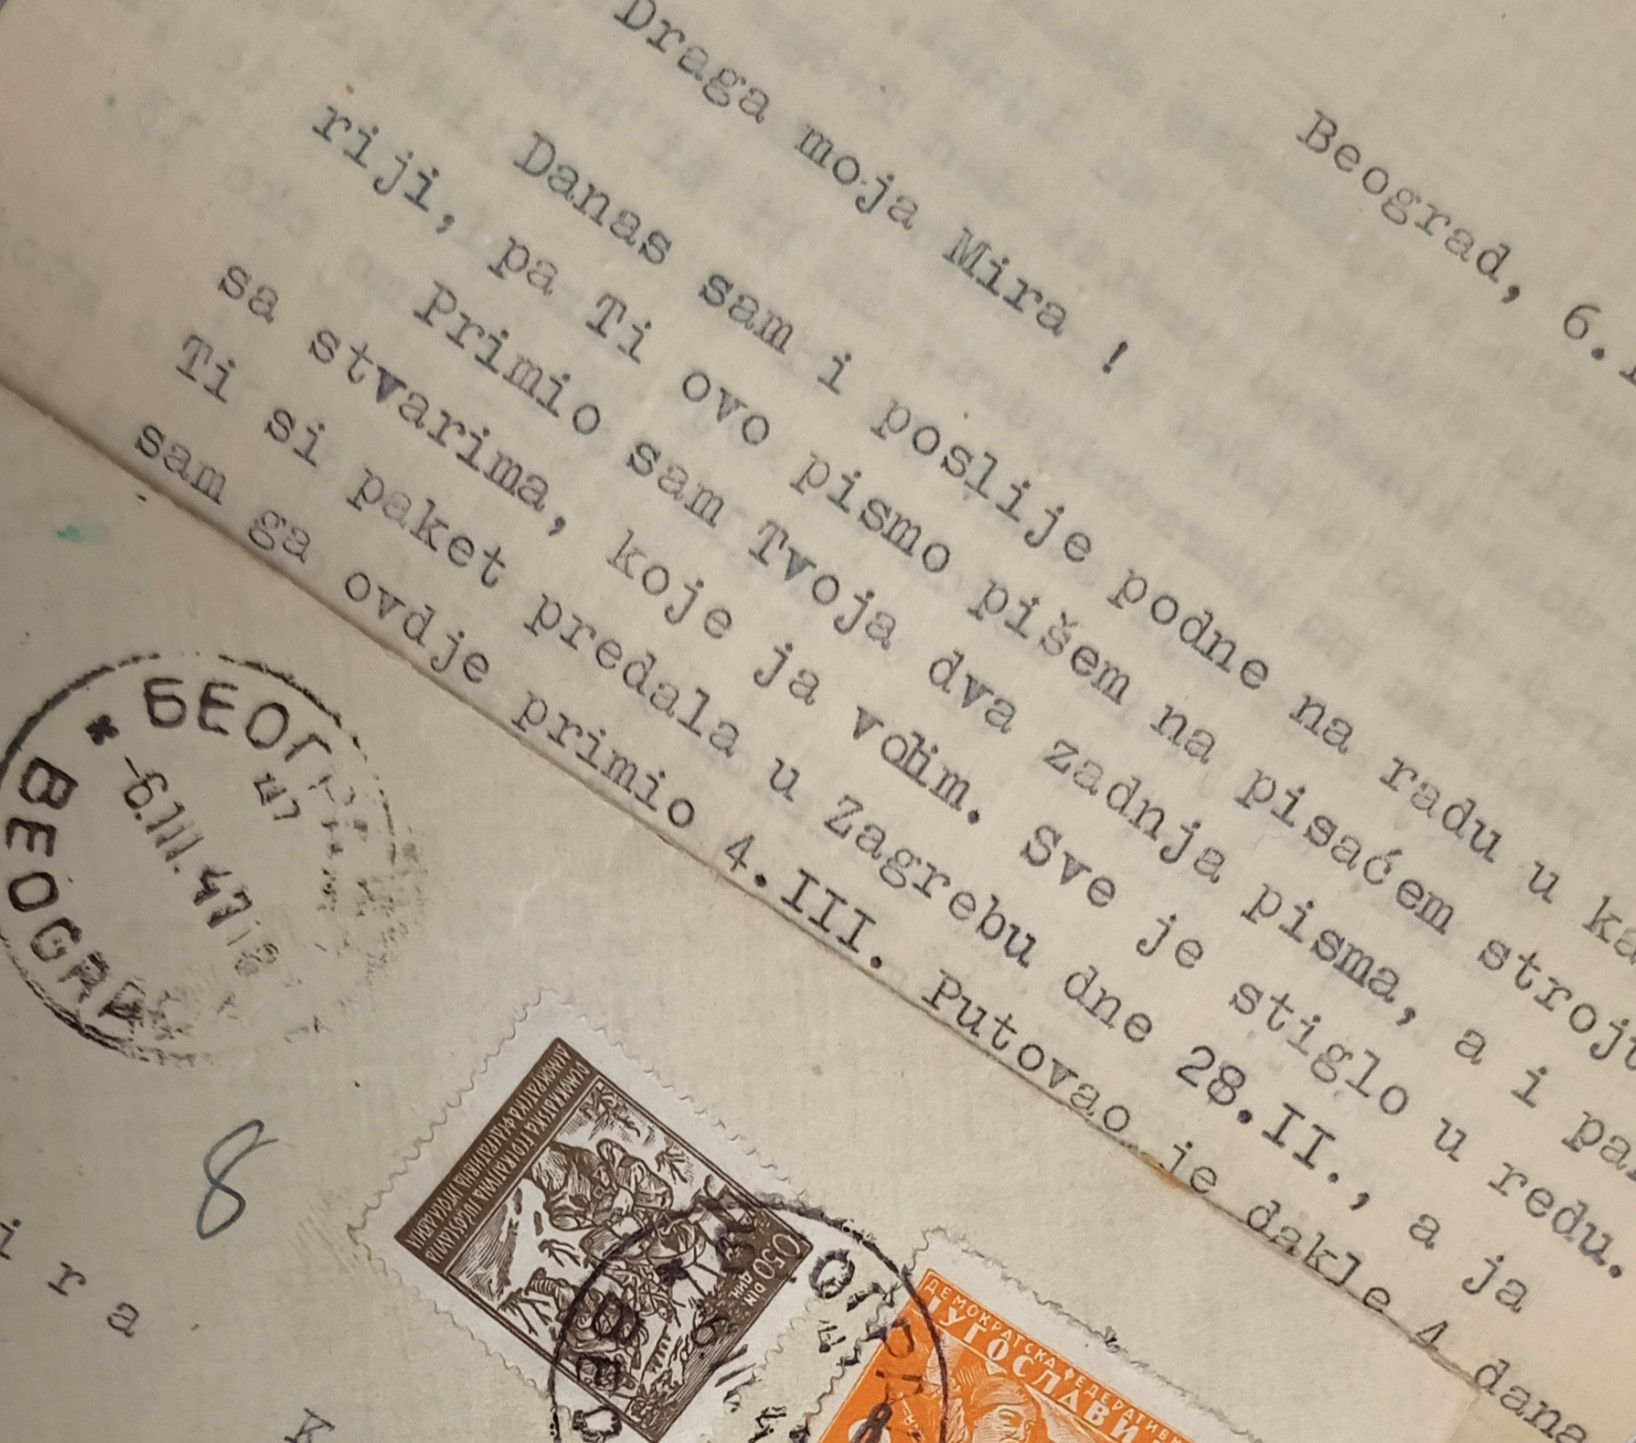 Beograd, 6.
Draga moja Mira !
Danas sam i poslije podne na radu u
riji, pa Ti ovo pismo pišem na pisaćem
Primio sam Tvoja dva zadnja pisma, a i
sa stvarima, koje ja volim. Sve je stiglo u redu.
Ti si paket predala u Zagrebu dne 28.II., a ja
sam ga ovdje primio 4.III. Putovao je dakle 4 dana
БЕОГР
-6.III.47
BEOGRA
8
ira
K
DEMOKRATSKA FEDERATIVNA JUGOSLAVIJA
ДЕМОКРАТСКА ФЕДЕРАТИВНА ЈУГОСЛАВИЈА
0.50 DIN
ДИН
ДЕМОКРАТСКА ФЕДЕРАТИВН
ЈУГОСЛАВИ
ОГРА
BEO
6.III.4